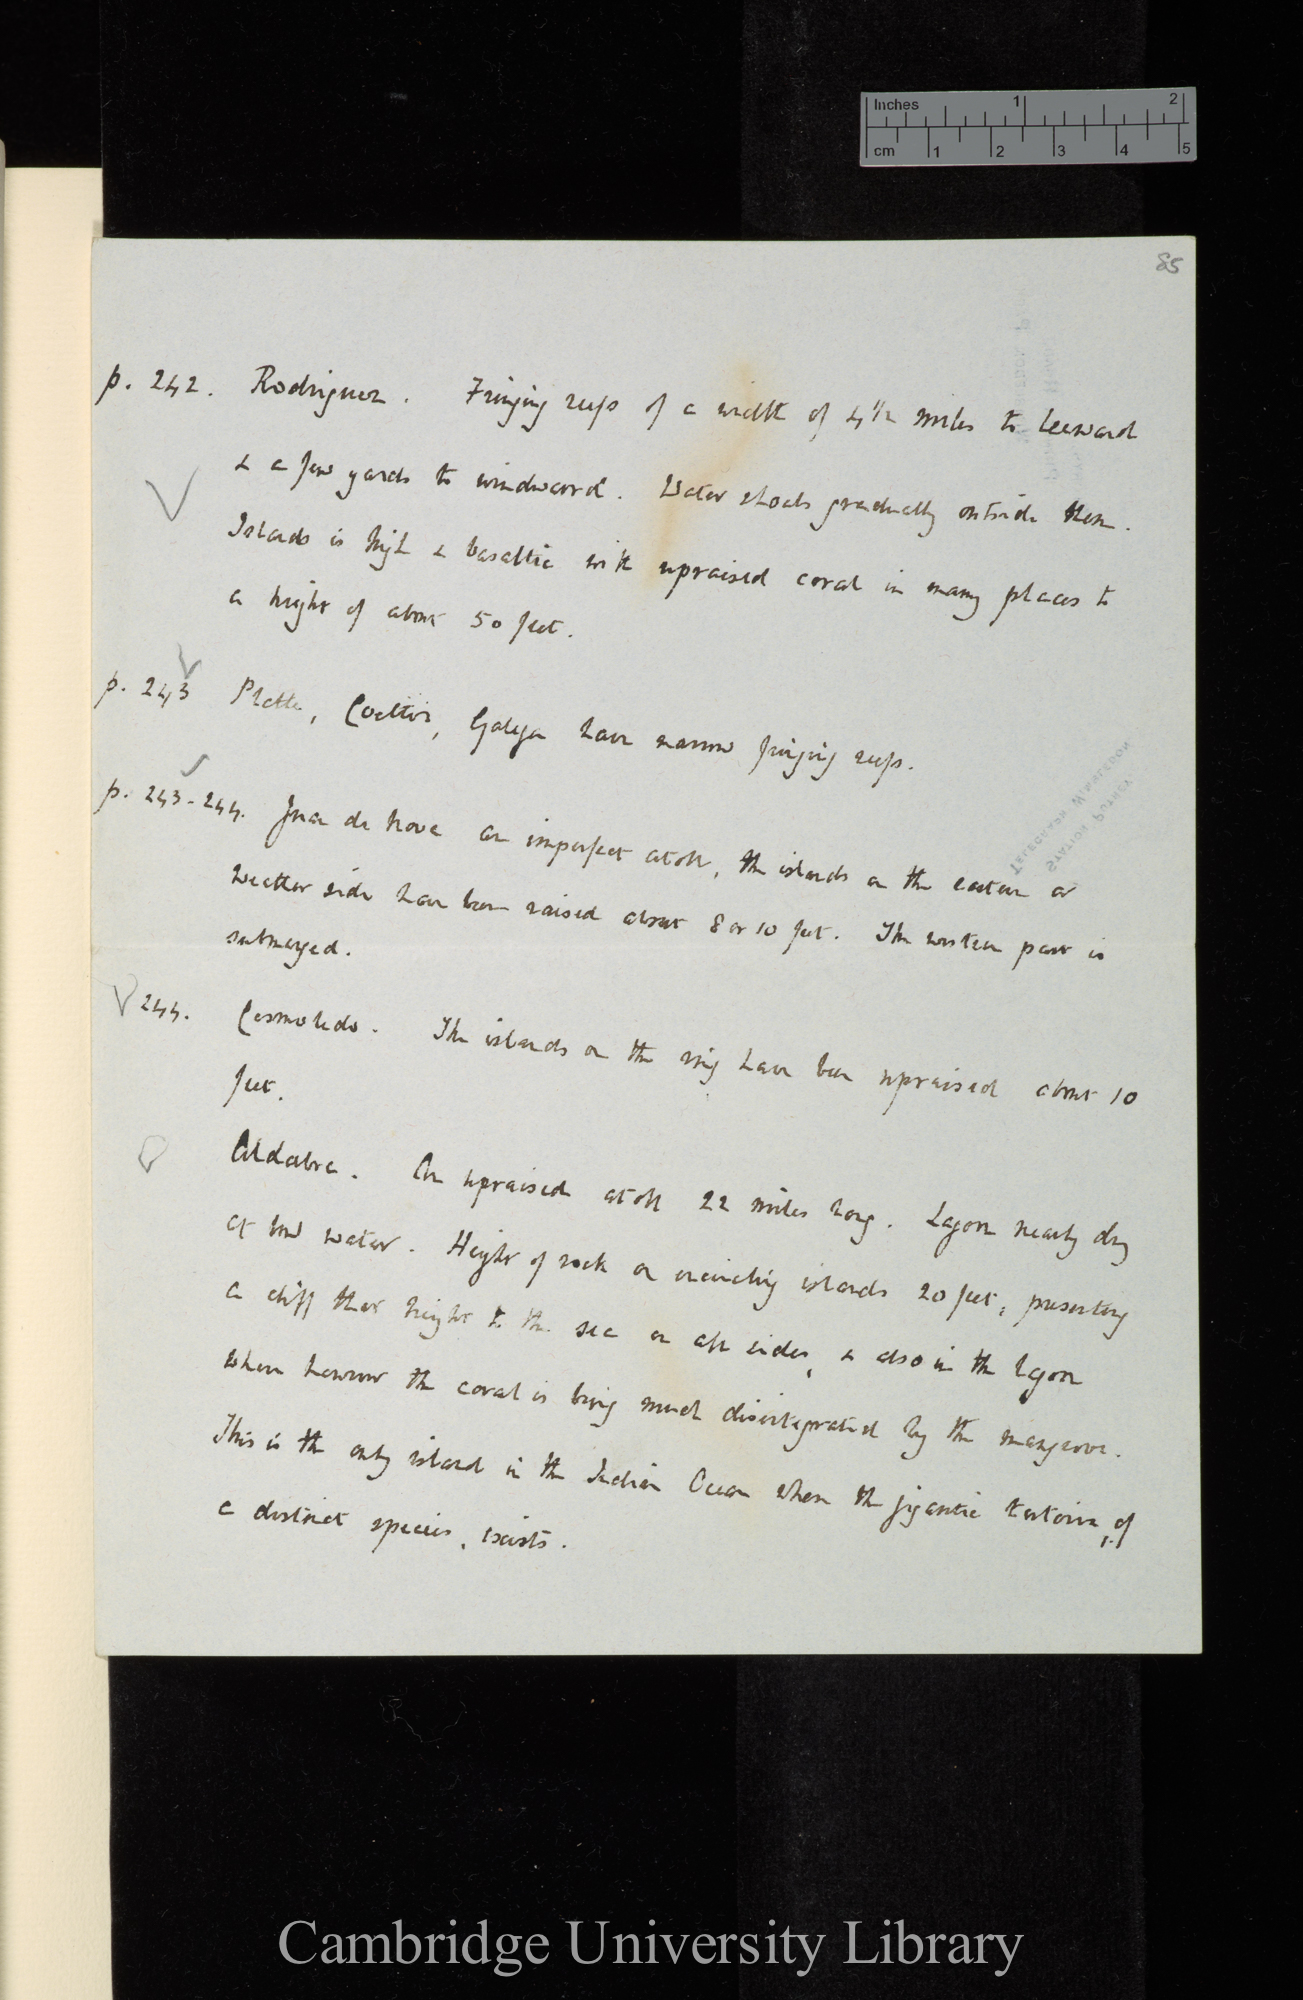 Inches 1 2
cm 1 2 3 4 5
85
p. 242. Rodriguez. Fringing reefs of a width of 4 1/2 miles to leeward
& a few yards to windward. Water shoals gradually outside them.
Islands is high & basaltic with upraised coral in many places to
a height of about 50 feet.
p. 243 Platte, Coetivi, Galega have narrow fringing reefs.
p. 243-244. Juan de Nova an imperfect atoll, the islands on the eastern or
weather side have been raised about 8 or 10 feet. The western part is
submerged.
244. Cosmoledo. The islands on the ring have been upraised about 10
feet.
Aldabra. An upraised atoll 22 miles long. Lagoon nearly dry
at low water. Height of rock on encircling islands 20 feet, presenting
a cliff that height to the sea on all sides, & also in the lagoon
where however the coral is being much disintegrated by the mangrove.
This is the only island in the Indian Ocean where the gigantic tortoise, of
a distinct species, exists.
TELEGRAPH WIMBLEDON
STATION PUTNEY
Cambridge University Library